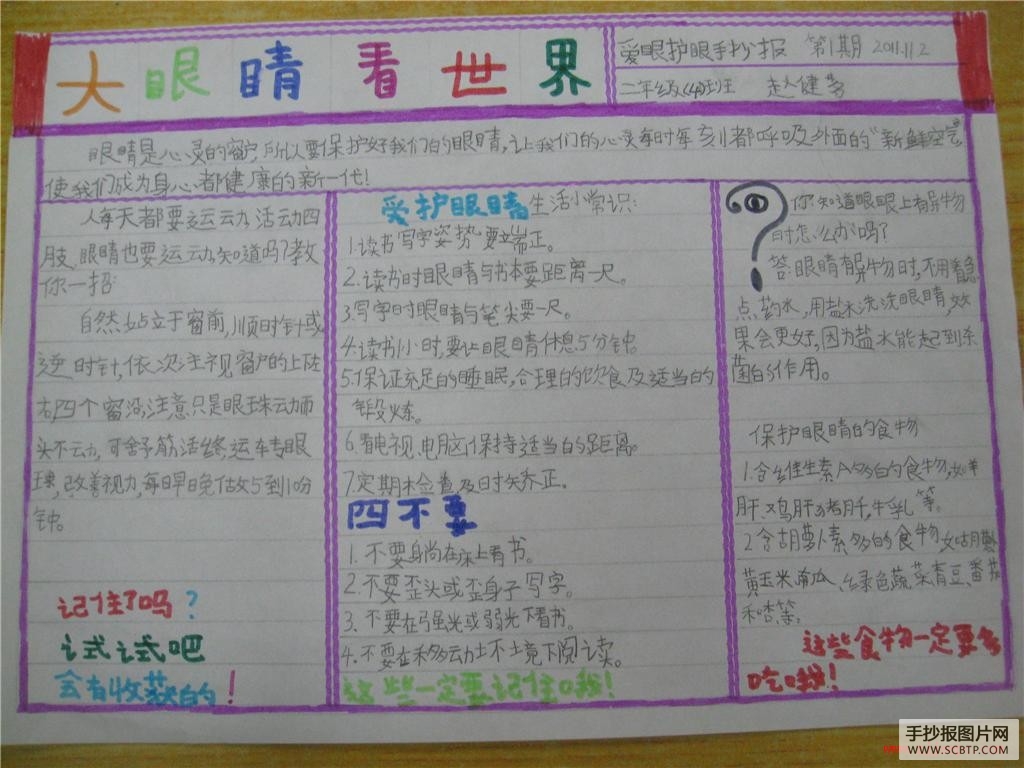 大眼睛看世界
爱眼护眼手抄报 第1期 2011.11.2
二年级(4)班 赵健
眼睛是心灵的窗户,所以要保护好我们的眼睛,让我们的心灵每时每刻都呼吸外面的"新鲜空气"
使我们成为身心都健康的新一代!
人每天都要运动,活动四
肢,眼睛也要运动,知道吗?教
你一招:
自然站立于窗前,顺时针或
逆时针,依次注视窗户的上左
右四个窗沿,注意只是眼珠动而
头不动,可舒筋活络,运转眼
球,改善视力,每日早晚做5到10分
钟。
记住了吗?
试试吧
会有收获的!
爱护眼睛生活小常识:
1.读书写字姿势要端正。
2.读书时眼睛与书本要距离一尺。
3.写字时眼睛与笔尖要一尺。
4.读书1小时,要让眼睛休息5分钟。
5.保证充足的睡眠,合理的饮食及适当的
锻炼。
6.看电视、电脑保持适当的距离。
7.定期检查及时矫正。
四不要
1.不要身尚在床上看书。
2.不要歪头或歪身子写字。
3.不要在强光或弱光下看书。
4.不要在移动环境下阅读。
这些一定要记住哦!
你知道眼睛上有异物
时怎么办吗?
答:眼睛有异物时,不用着急
点药水,用盐水洗洗眼睛,效
果会更好,因为盐水能起到杀
菌的作用。
保护眼睛的食物
1.含维生素A多的食物,如羊
肝、鸡肝、猪肝,牛乳等。
2.含胡萝人素多的食物如胡萝
黄玉米、南瓜、绿色蔬菜、青豆、番茄
和杏等。
这些食物一定要多
吃哦!
手抄报图片网
WWW.SCBTP.COM